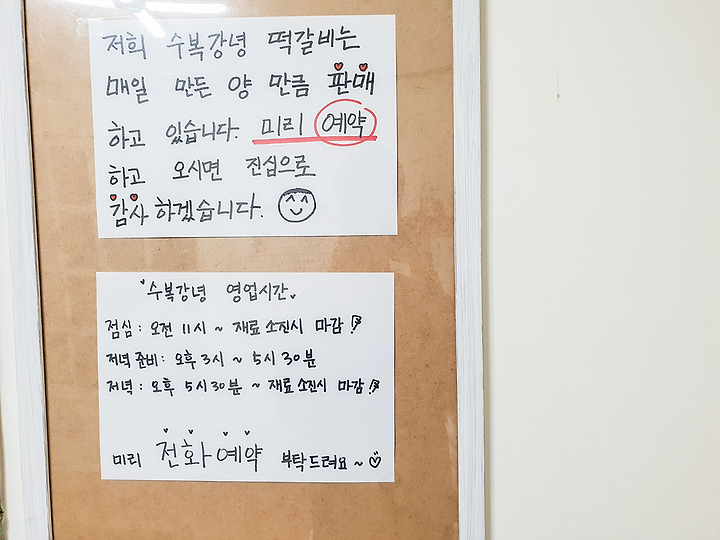 저희 수복강녕 떡갈비는
매일 만든 양 만큼 판매
하고 있습니다. 미리 예약
하고 오시면 진심으로
감사하겠습니다.
수복강녕 영업시간
점심 : 오전 11시 ~ 재료소진시 마감!
저녁준비 : 오후 3시 ~ 5시 30분
저녁 : 오후 5시 30분 ~ 재료소진시 마감!
미리 전화예약 부탁드려요~